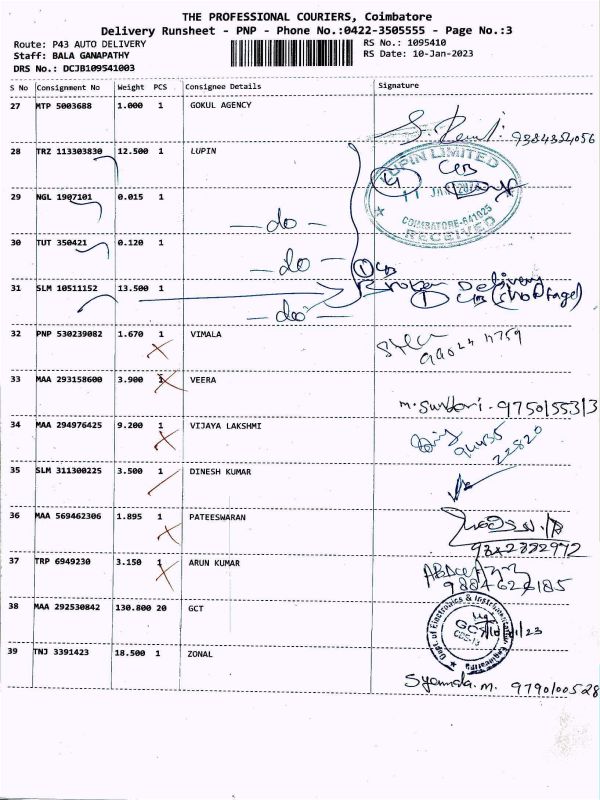 THE PROFESSIONAL COURIERS, Coimbatore
Delivery Runsheet - PNP - Phone No.:0422-3505555 - Page No.:3
Route: P43 AUTO DELIVERY RS No.: 1095410
Staff: BALA GANAPATHY RS Date: 10-Jan-2023
DRS No.: DCJB109541003
S No Consignment No Weight PCS Consignee Details Signature
27 MTP 5003688 1.000 1 GOKUL AGENCY
28 TRZ 113303830 12.500 1 LUPIN
LUPIN LIMITED
COIMBATORE-641025
RECEIVED
29 NGL 1907101 0.015 1 - do -
30 TUT 350421 0.120 1 - do -
31 SLM 10511152 13.500 1 - do -
Broken Delivery
(shortage)
32 PNP 530239082 1.670 1 VIMALA
33 MAA 293158600 3.900 1 VEERA
9750155313
34 MAA 294976425 9.200 1 VIJAYA LAKSHMI
35 SLM 311300225 3.500 1 DINESH KUMAR
36 MAA 569462306 1.895 1 PATEESWARAN
37 TRP 6949230 3.150 1 ARUN KUMAR
38 MAA 292530842 130.800 20 GCT
Dept. of Electronics & Instrumentation Engineering
39 TNJ 3391423 18.500 1 ZONAL
Syamala.m. 9790100528